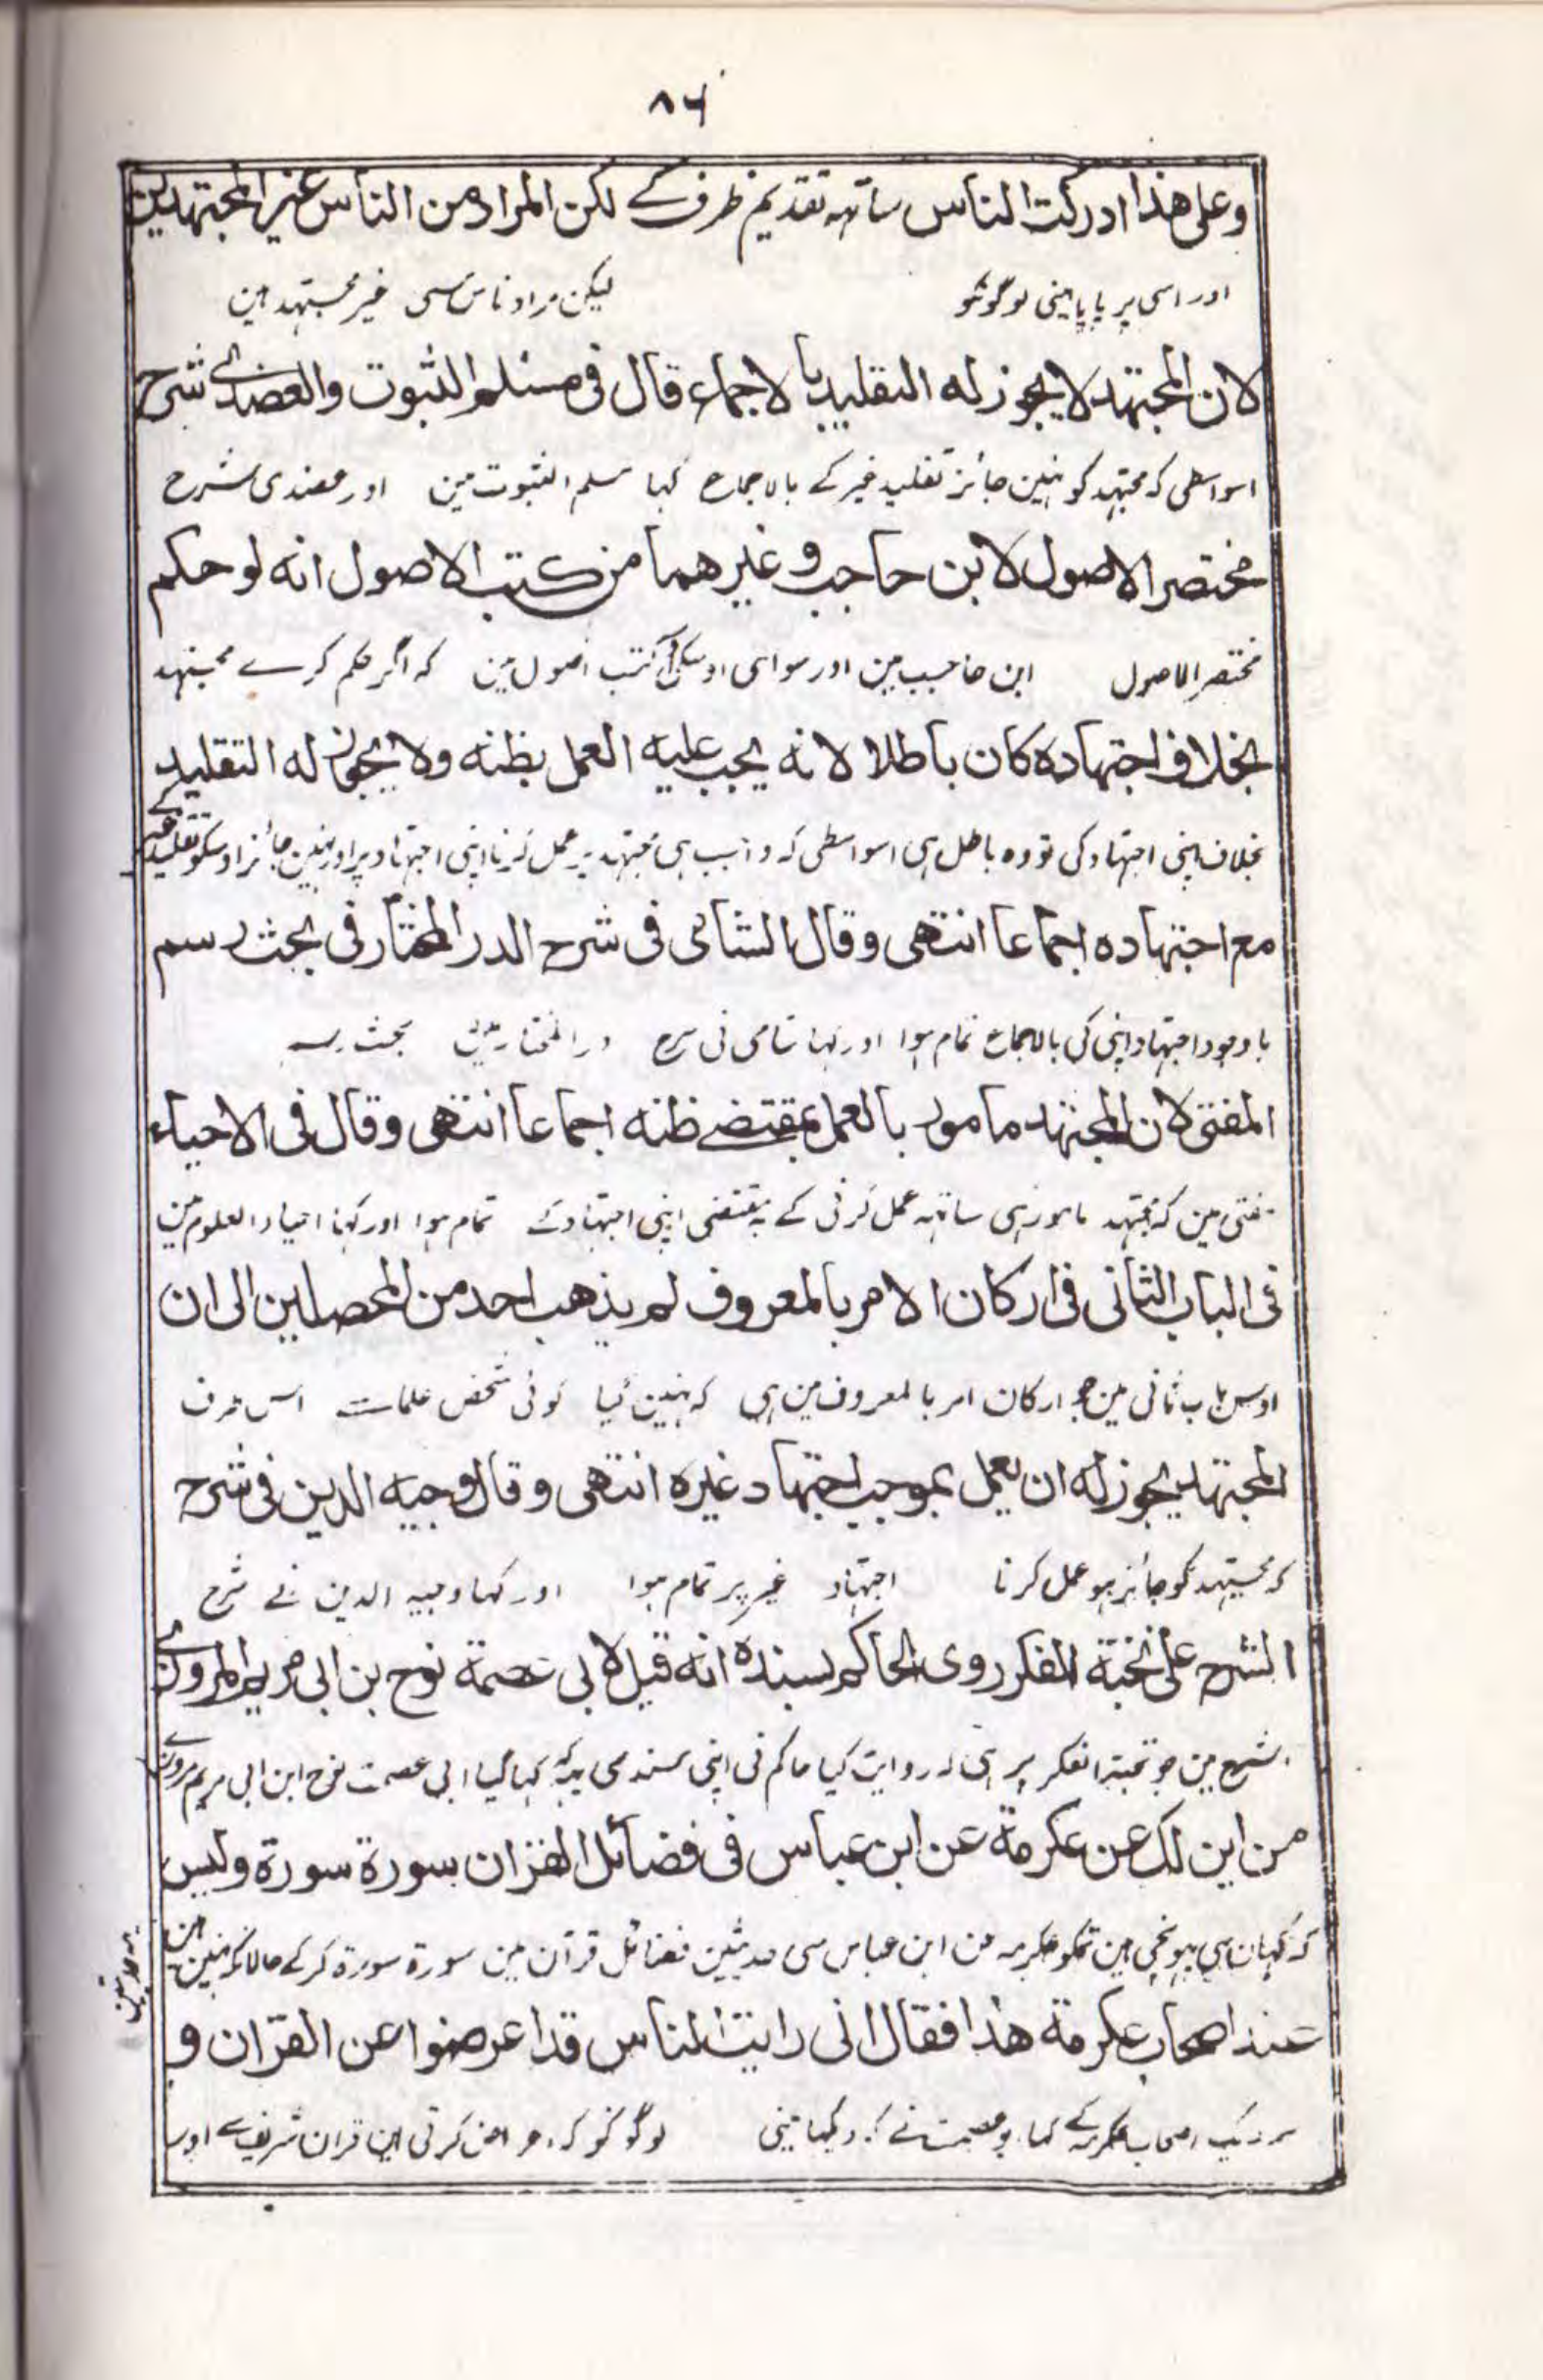 ٨٦
وعلى هذا ادركت الناس ساتهه تقديم ظرف کے لكن المراد من الناس غير المجتهدين
اور اسی پر پایا مینی لوگونکو لیکن مراد ناس سی غیر مجتہد ہین
لان المجتهد لا يجوز له التقليد بالاجماع قال فى مسلم الثبوت والعضدى شرح
اسواسطی کہ مجتہد کو نہین جائز تقلید غیر کے بالاجماع کہا مسلم الثبوت مین اور عضدی شرح
مختصر الاصول لابن حاجب وغيرهما من كتب الاصول انه لو حكم
مختصر الاصول ابن حاجب مین اور سوای اوسکی کتب اصول مین کہ اگر حکم کرے مجتہد
بخلاف اجتهاده كان باطلا لانه يجب عليه العمل بظنه ولا يجوز له التقليد
بخلاف اپنی اجتہاد کی تو وہ باطل ہی اسواسطی کہ واجب ہی مجتہد پر عمل کرنا اپنی اجتہاد پر اور نہین جائز اوسکو تقلید غیر کے
مع اجتهاده اجماعا انتهى وقال الشامى فى شرح الدر المختار فى بحث رسم
باوجود اجتہاد اپنی کی بالاجماع تمام ہوا اور کہا شامی نی شرح در المختار مین بحث رسم
المفتى لان المجتهد مامور بالعمل بمقتضے ظنه اجماعا انتهى وقال فى الاحياء
مفتی مین کہ مجتہد مامور ہی ساتہہ عمل کرنی کے بمقتضی اپنی اجتہاد کے تمام ہوا اور کہا احیاء العلوم مین
فى الباب الثانى فى اركان الامر بالمعروف لم يذهب احد من المحصلين الى ان
اوس باب ثانی مین جو ارکان امر بالمعروف مین ہی کہ نہین گیا کوئی شخص علما سے اس طرف
المجتهد يجوز له ان يعمل بموجب اجتهاد غيره انتهى وقال وجيه الدين فى شرح
کہ مجتہد کو جائز ہو عمل کرنا اجتہاد غیر پر تمام ہوا اور کہا وجیہ الدین نے شرح
الشرح على نخبة الفكر روى الحاكم بسنده انه قيل لابى عصمة نوح بن ابى مريم المروزى
الشرح مین جو نخبۃ الفکر پر ہی کہ روایت کیا حاکم نی اپنی سند سی یہ کہ کہا گیا ابی عصمت نوح ابن ابی مریم مروزی
من اين لك عن عكرمة عن ابن عباس فى فضائل القران سورة سورة وليس
کہ کہان سی پہونچی ہین تمکو عکرمہ عن ابن عباس سی حدیثین فضائل قرآن مین سورۃ سورۃ کرکے حالانکہ نہین ہین
یہ حدیثین
عند اصحاب عكرمة هذا فقال انى رايت الناس قد اعرضوا عن القران و
نزدیک اصحاب عکرمہ کے کہا ابو عصمت نے کہ دیکہا مینی لوگونکو کہ اعراض کرتی ہین قران شریف سے اور